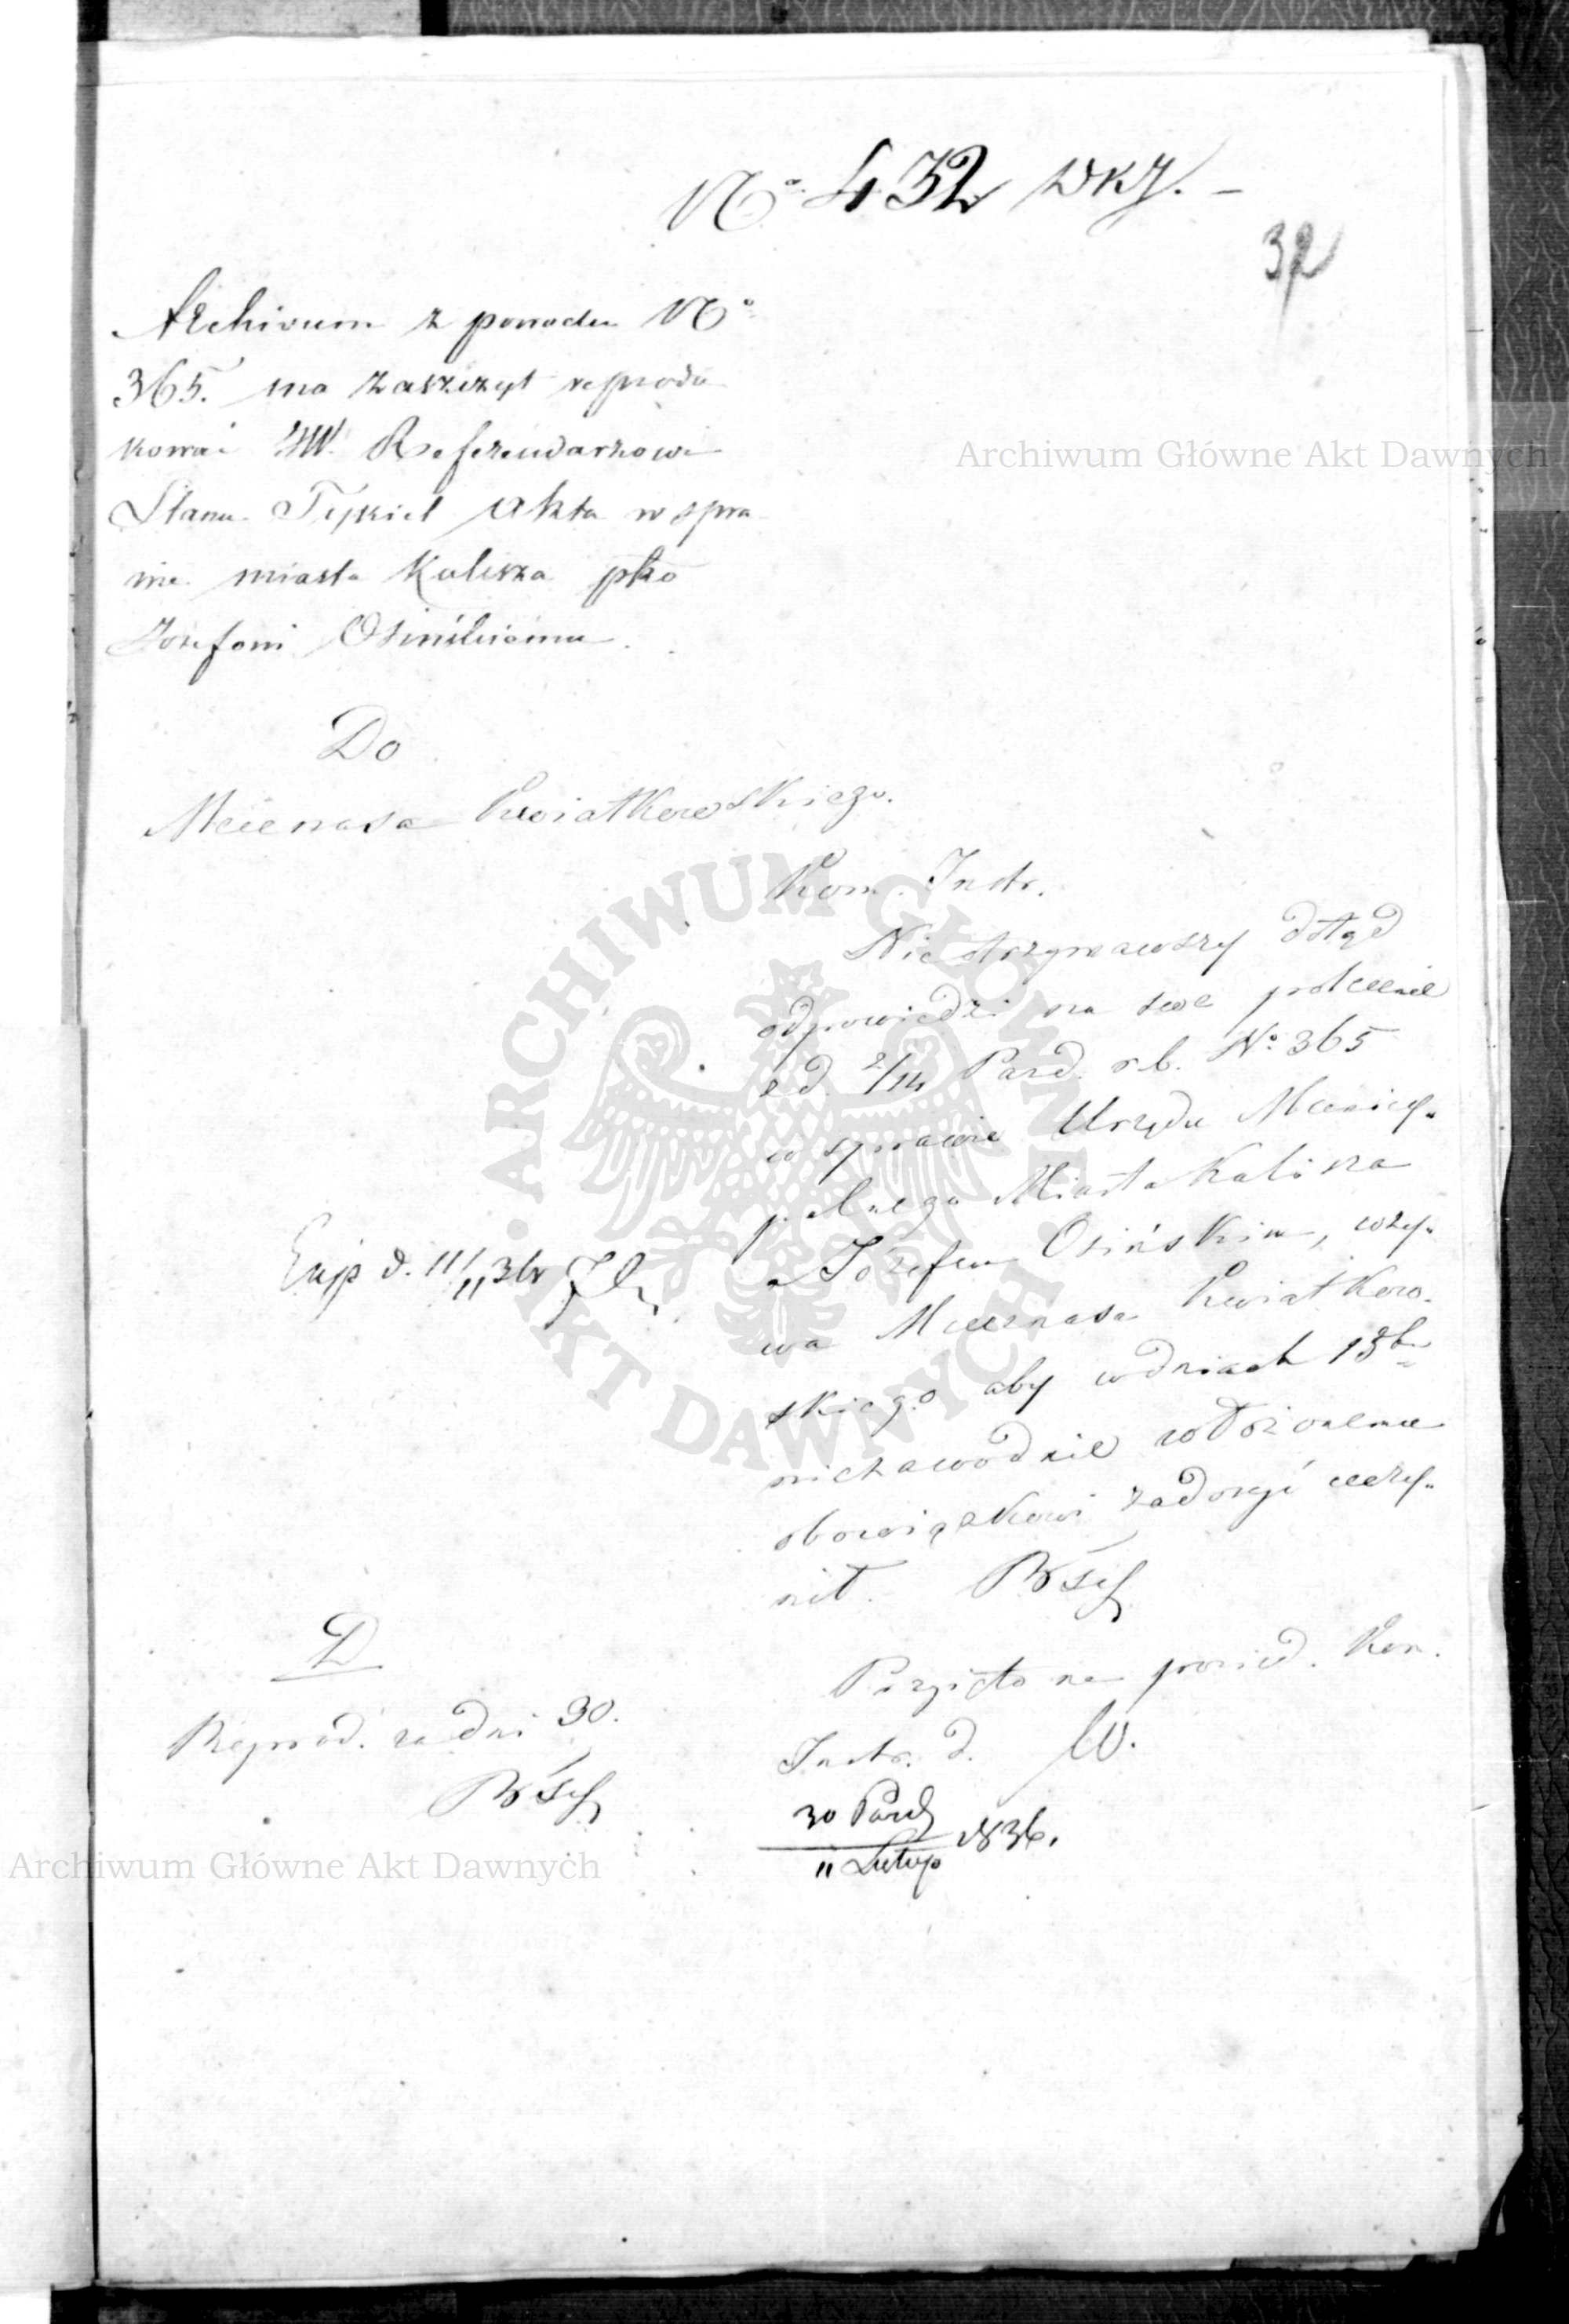 No 432 WKJ. –
32
Archivum z powodu No
365. ma zaszczyt reprodu
kować JW. Referendarzowi
Stanu Tykiel akta w spra
wie miasta Kalisza pko
Józefowi Osińskiemu.
Do
Mecenasa Kwiatkowskiego.
Kom. Instr.
Nieotrzymawszy dotąd
odpowiedzi na swe polecenie
z d. 2/14 Paźd. r.b. No 365
w sprawie Urzędu Municy„
palnego Miasta Kalisza
z Józefem Osińskim, wzy„
wa Mecenasa Kwiatkow„
skiego aby w dniach 15tu
niezawodnie
obowiązkowi zadosyć uczy„
nił.
Exp d. 11/11 36
Przyięto na posied. Kom.
Instr. d. W.
D
Reprod. za dni 30.
30 Paźd
11 Listop 1836.
Archiwum Główne Akt Dawnych
ARCHIWUM GŁÓWNE AKT DAWNYCH
Archiwum Główne Akt Dawnych